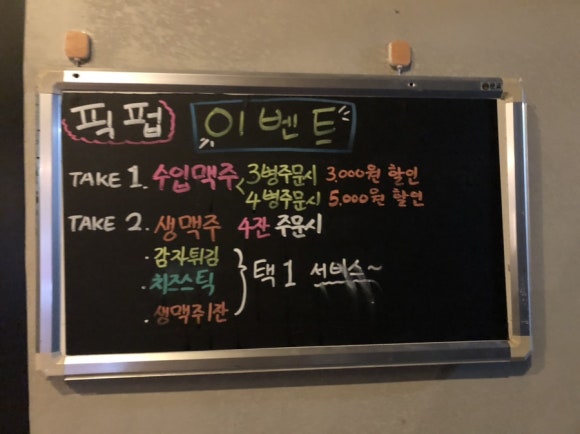 픽펍 이벤트
TAKE 1. 수입맥주 < 3병주문시 3.000원 할인
4병주문시 5.000원 할인
TAKE 2. 생맥주 4잔 주문시
· 감자튀김
· 치즈스틱
· 생맥주1잔
} 택1 서비스~